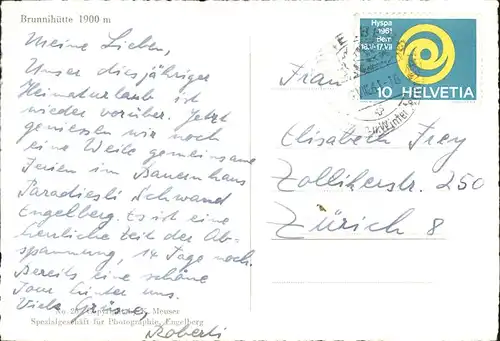 Brunnihütte 1900 m
Meine Lieben,
Unser diesjähriger
Heimaturlaub ist
wieder vorüber. Jetzt
geniessen wir noch
eine Weile gemeinsame
Ferien im Bauernhaus
Paradiesli Schwand
Engelberg. Es ist eine
herrliche Zeit der Ab-
spannung, 14 Tage noch.
Bereits eine schöne
Tour hinter uns.
Viele Grüsse,
Roberti
Meuser
Spezialgeschäft für Photographie, Engelberg
Hyspa
1961
Bern
18.V-17.VII
10 HELVETIA
Frau
Elisabeth Frey
Zollikerstr. 250
Zürich 8